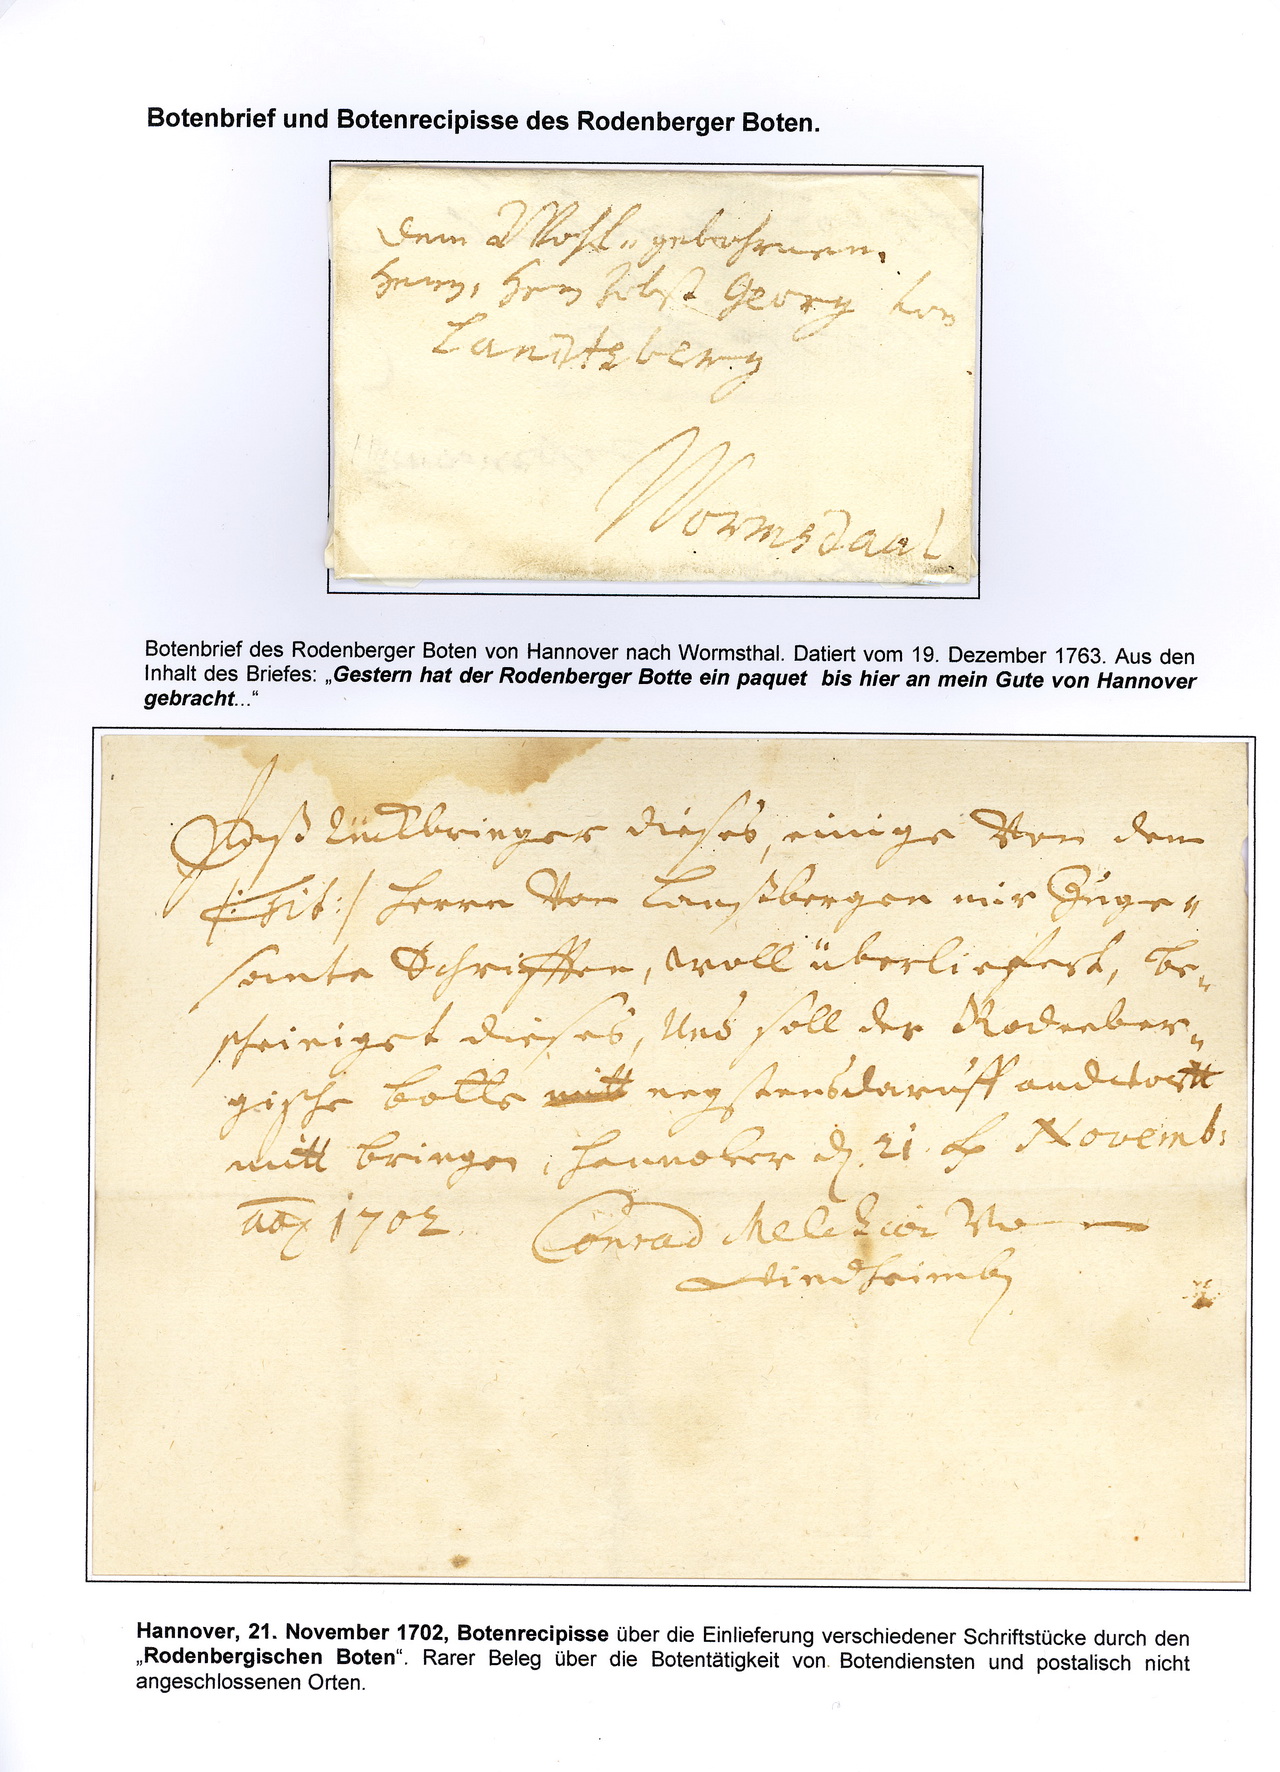 Botenbrief und Botenrecipisse des Rodenberger Boten.
Dem Wohl„gebohrnen.
Herrn, Herrn Jobst Georg von
Landtsberg
Wormsdaal
Botenbrief des Rodenberger Boten von Hannover nach Wormsthal. Datiert vom 19. Dezember 1763. Aus den
Inhalt des Briefes: „Gestern hat der Rodenberger Botte ein paquet bis hier an mein Gute von Hannover
gebracht...“
Daß rückbringer dieses, einige Von dem
/:Tit:/ Herrn Von Lanßbergen mir Zuge„
sante Schrifften, woll überliefert, be„
scheiniget dieses, Und soll der Rodenber„
gische botte negstens daruff andtwortt
mitt bringen, Hannover d. 21. Novemb:
1702 Conrad Melchior Von
Windheimb
Hannover, 21. November 1702, Botenrecipisse über die Einlieferung verschiedener Schriftstücke durch den
„Rodenbergischen Boten“. Rarer Beleg über die Botentätigkeit von Botendiensten und postalisch nicht
angeschlossenen Orten.